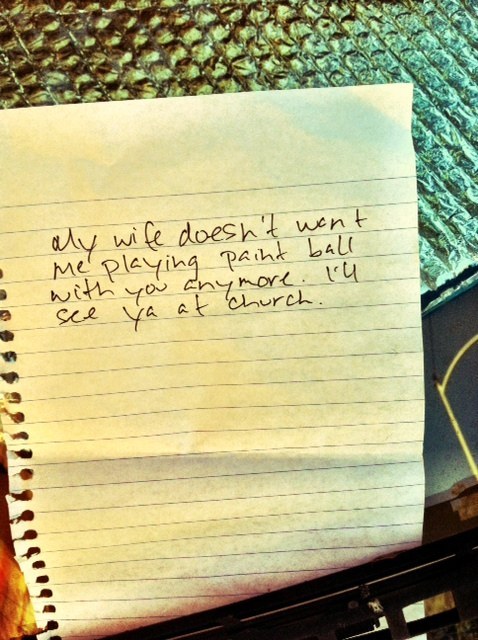 My wife doesn't want
me playing paint ball
with you anymore. I'll
see ya at church.